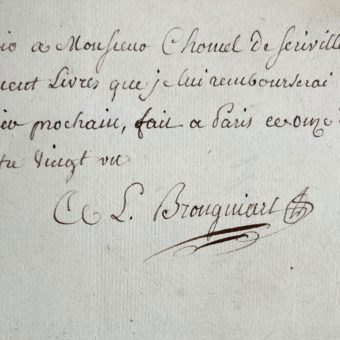 a Monsieur Chomel de Seriville
cent Livres que je lui rembourserai
prochain, fait a Paris ce onze
vingt un
Brongniart